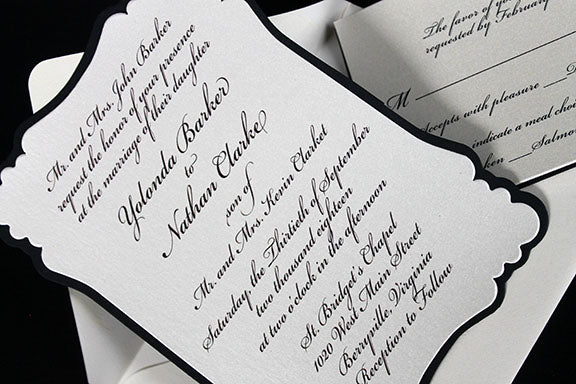 Mr. and Mrs. John Barker
request the honor of your presence
at the marriage of their daughter
Yolonda Barker
to
Nathan Clarke
son of
Mr. and Mrs. Kevin Clarket
Saturday the Thirtieth of September
two thousand eighteen
at two o'clock in the afternoon
St. Bridget's Chapel
1020 West Main Street
Berryville, Virginia
Reception to Follow
The favor of
requested by February
M
Accepts with pleasure
indicate a meal